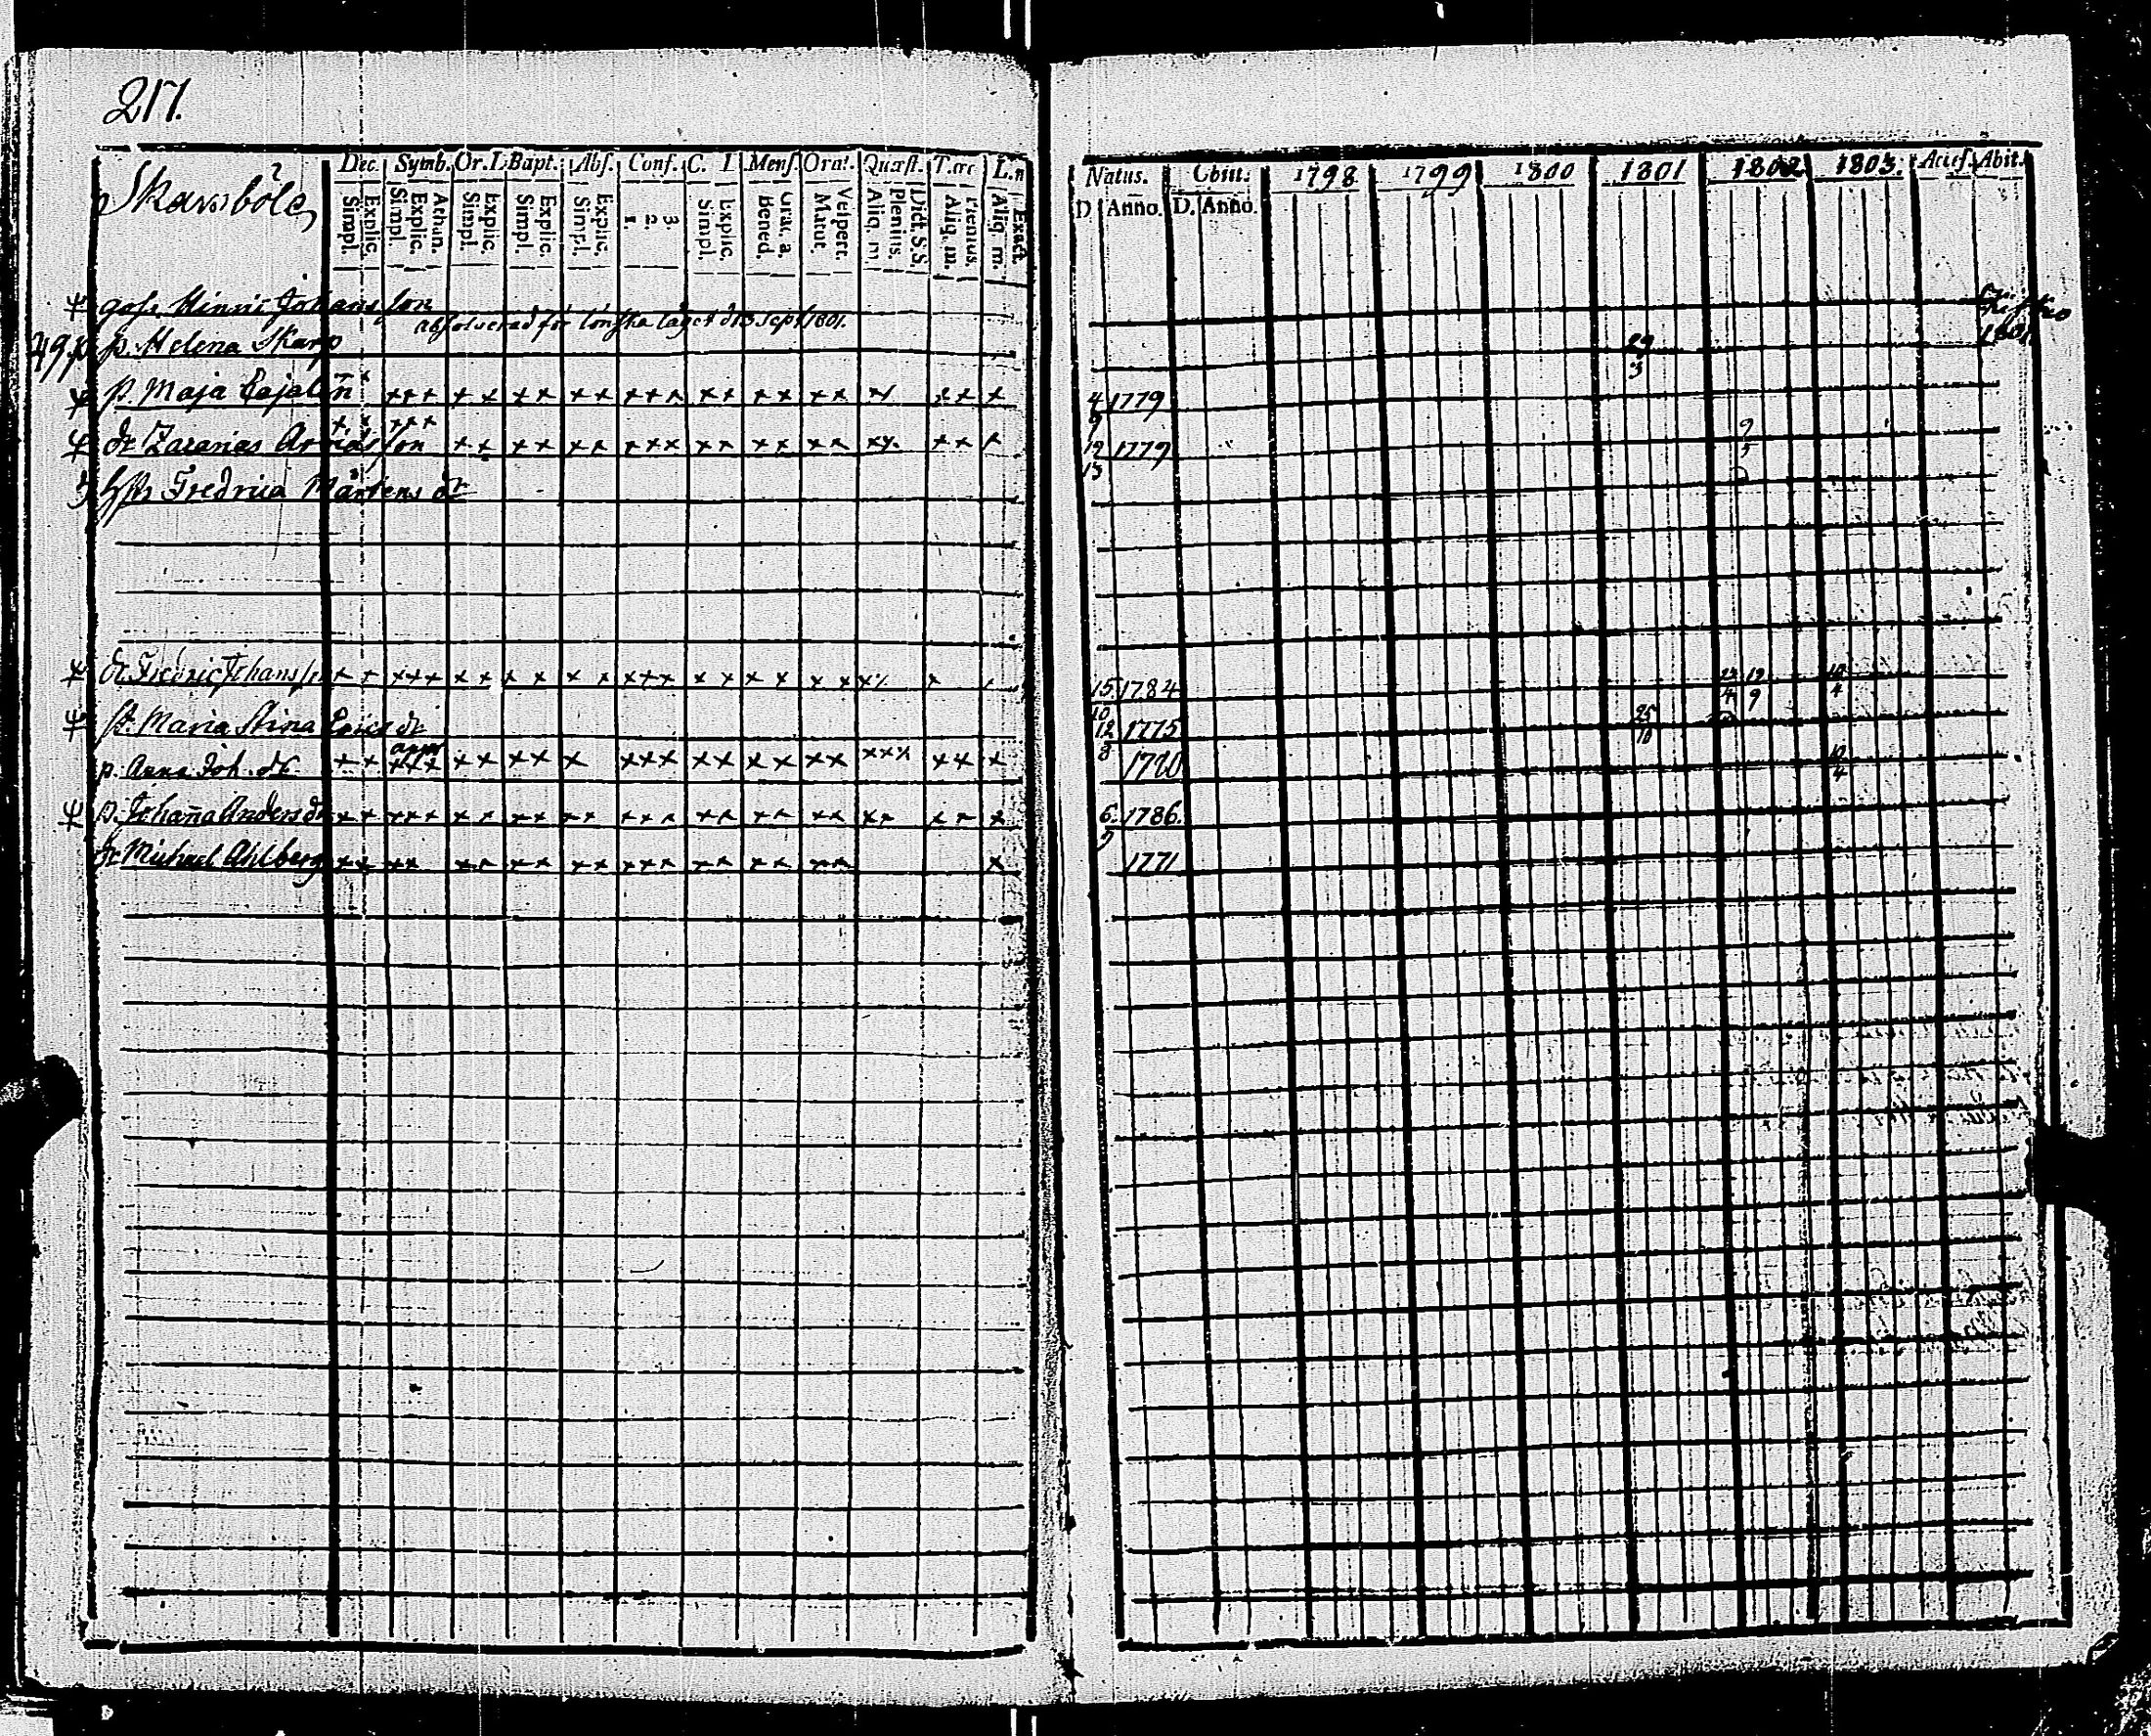 217.
Skarsböle
Dec. Symb. Or. D. Bapt. Abs. Conf. C. D. Mens. Orat. Quæst. T. œc L. n
Simpl. Explic. Simpl. Explic. Athan. Simpl. Explic. Simpl. Explic. Simpl. Explic. 1. 2. 3. Simpl. Explic. Bened. Grat. a. Matut. Vespert. Aliq. m Plenius. Dict. S.S. Aliq. m. Plenius. Aliq. m. Exact
Natus. Obiit. 1798 1799 1800 1801 1802 1803. Accef. Abit.
D Anno. D. Anno.
goss Hinric Johansson
absolverad för lönska läget d 13 Sept 1801.
p. Helena Skarp 29 3
p. Maja Cajalen 4 9 1779
dr Zacarias Arvidsson 12 13 1779 9 5
hst Fredrica Mårtens dr
dr Fredric Johanss 15 10 1784 19 9 10 4
p. Maria Stina Erics dr 12 8 1775 25 10
p. Anna Joh. dr 1780 10 4
p. Johana Anders dr 6. 5 1786.
dr Michael Ahlberg 1771